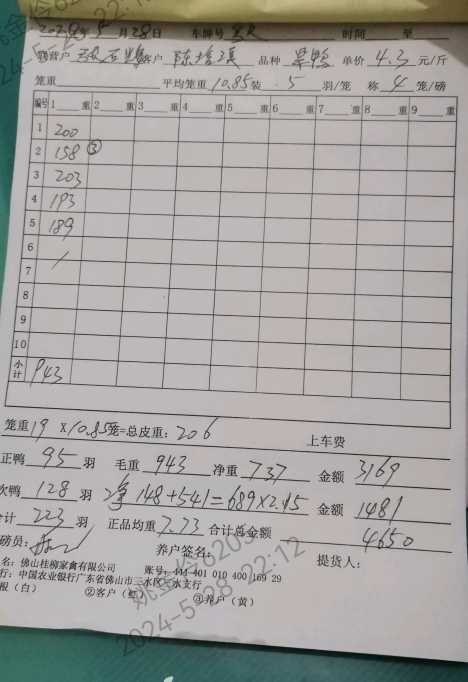 2024年5月28日 车牌号 时间 至
养户 客户 陈 品种 单价 4.3 元/斤
笼重 平均笼重 10.85 装 5 羽/笼 称 4 笼/磅
编号 1 重 2 重 3 重 4 重 5 重 6 重 7 重 8 重 9 重
1 200
2 158 ③
3 203
4 193
5 189
6 /
7
8
9
10
小计 943
笼重 19 X 10.85 笼=总皮重: 206 上车费
正鸭 95 羽 毛重 943 净重 737 金额 3169
次鸭 128 羽 净 148+541=689X2.15 金额 1481
合计 223 羽 正品均重 7.73 合计总金额 4650
磅员: 养户签名: 提货人:
名: 佛山桂柳家禽有限公司 账号: 444 401 010 400 169 29
行: 中国农业银行广东省佛山市三水区 水支行
根 (白) ②客户 (红) ③养户 (黄)
2024-5-28 22:12